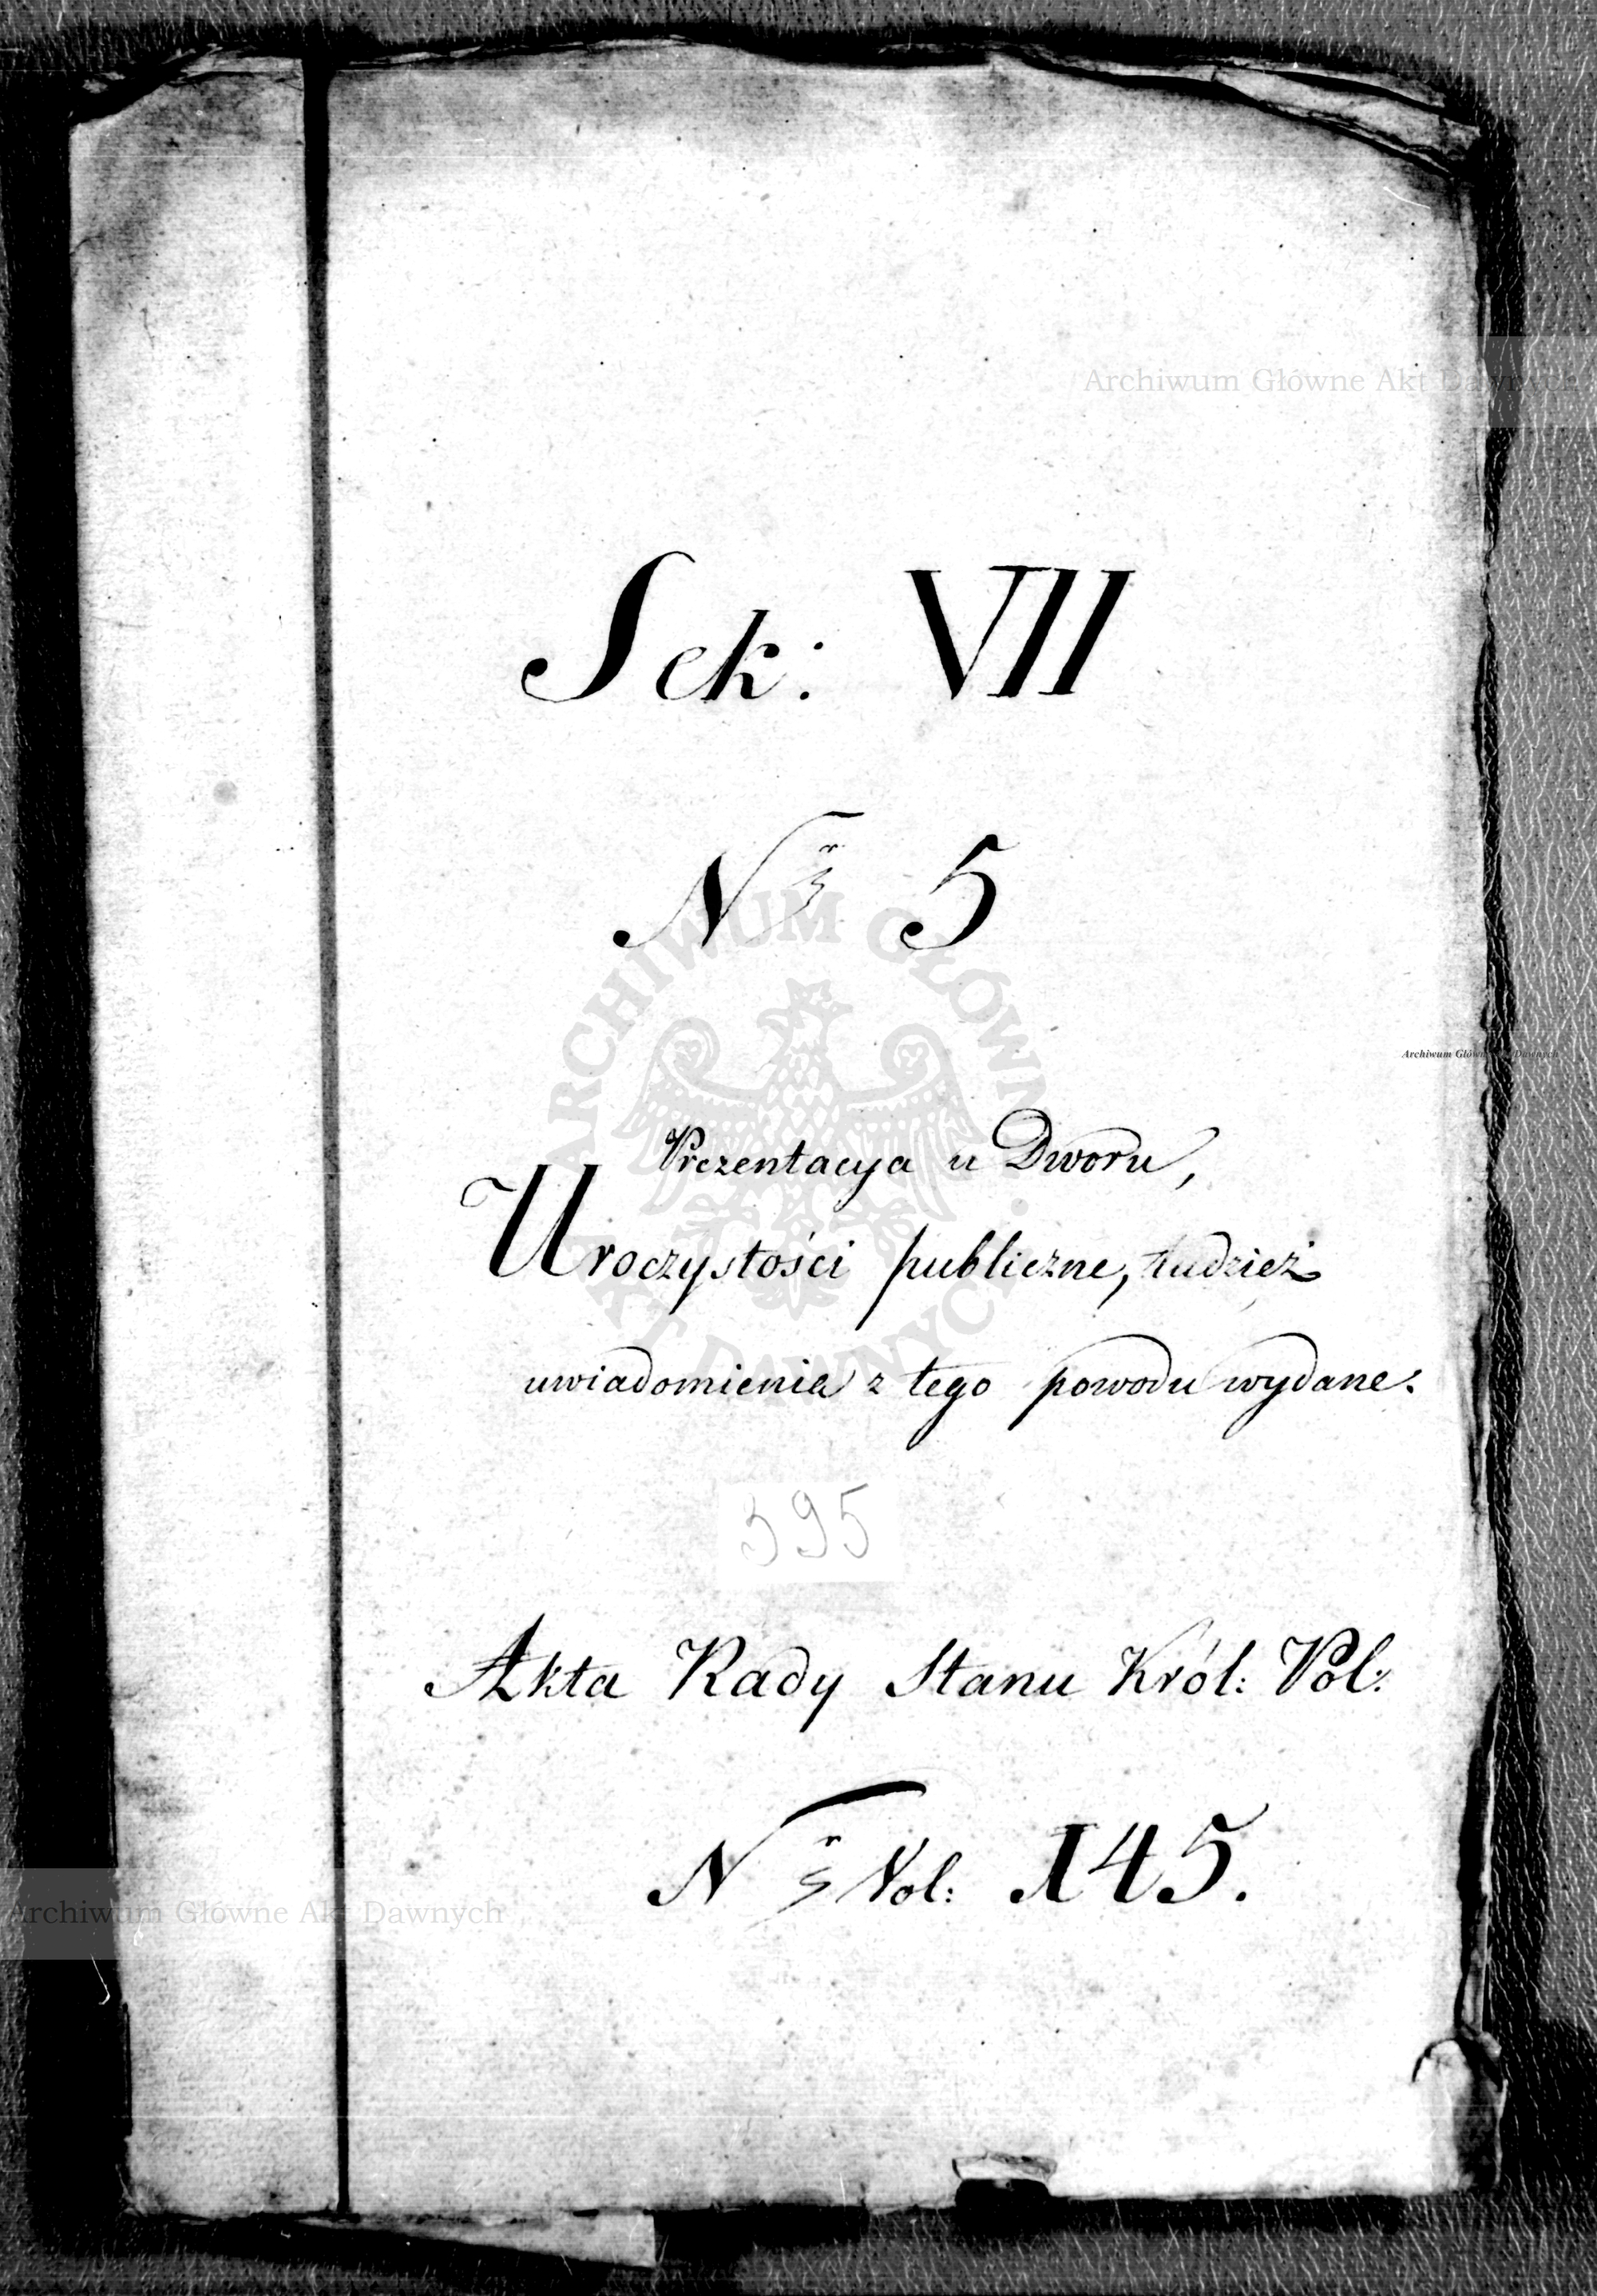 Archiwum Główne Akt Dawnych
Sek: VII
Nr 5
ARCHIWUM GŁÓWNE AKT DAWNYCH
Archiwum Główne Akt Dawnych
Prezentacya u Dworu,
Uroczystości publiczne, tudzież
uwiadomienia z tego powodu wydane.
395
Akta Rady Stanu Król: Pol:
Nr Vol: 145.
Archiwum Główne Akt Dawnych